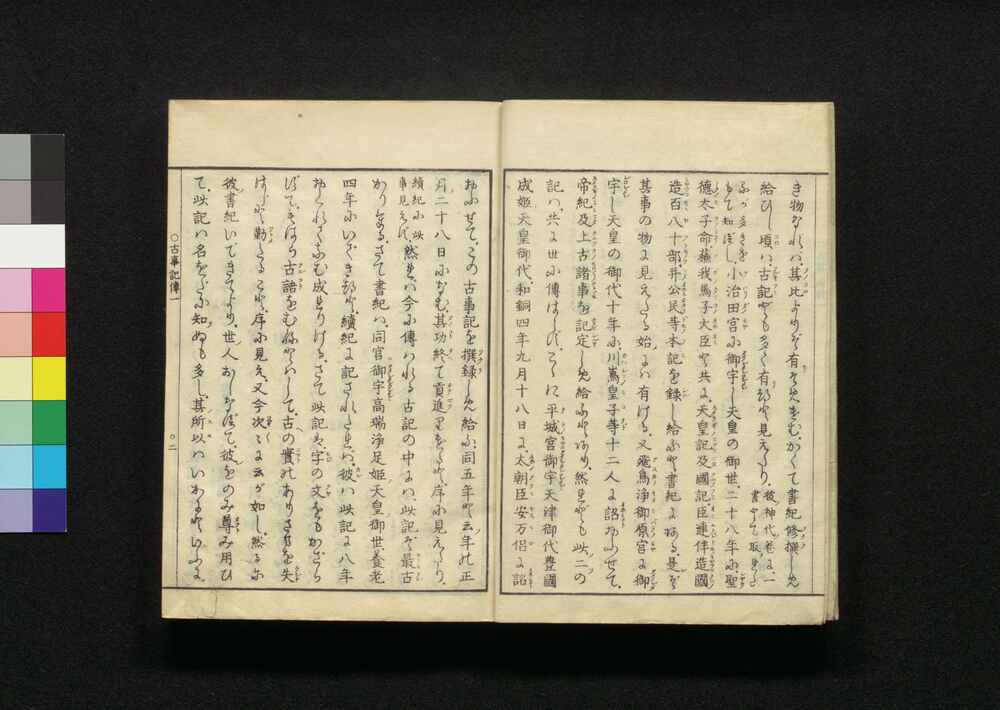 き物なれバ、其比よりぞ有そめけむ、かくて書紀修撰しめ
給ひし頃ハ古記ども多く有つと見えたり、彼神代巻に一書とて取れる
が多きをもて知べし、小治田宮に御宇し天皇の御世二十八年に、聖
德太子命蘇我馬子大臣と共に、天皇記及國記臣連伴造國
造百八十部、并公民等本記を録し給ふと書紀にある、是ぞ
其事の物に見えたる始にハ有ける、又飛鳥淨御原宮に御
宇し天皇の御代十年に、川嶌皇子等十二人に詔おふせて、
帝紀及上古諸事を記定しめ給ふとあり、然れども此二の
記ハ、共に世に傳はらず、こゝに平城宮御宇天津御代豊國
成姫天皇御代、和銅四年九月十八日に、太朝臣安万侶に詔
おふせて、この古事記を撰録しめ給ふ、同五年と云年の正
月二十八日になむ、其功終て貢進りきと序に見えたり、
續紀に此事見えず、然れバ今に傳ハれる古記の中にハ、此記ぞ最古
かりける、さて書紀ハ、同宮御宇高瑞淨足姫天皇御世、養老
四年にいできつと、續紀に記されたれバ、彼ハ此記に八年
おくれてなむ成れりける、さて此記ハ、字の文をもかざら
ずて、もはら古語をむねとハして、古の實のありさまを失
はじと勤たること、序に見え、又今次々に云が如し、然るに
彼書紀いできてより、世人おしなべて、彼をのみ尊み用ひ
て、此記ハ名をだに知ぬも多し、其所以ハいかにといふに
○古事記傳一
○二